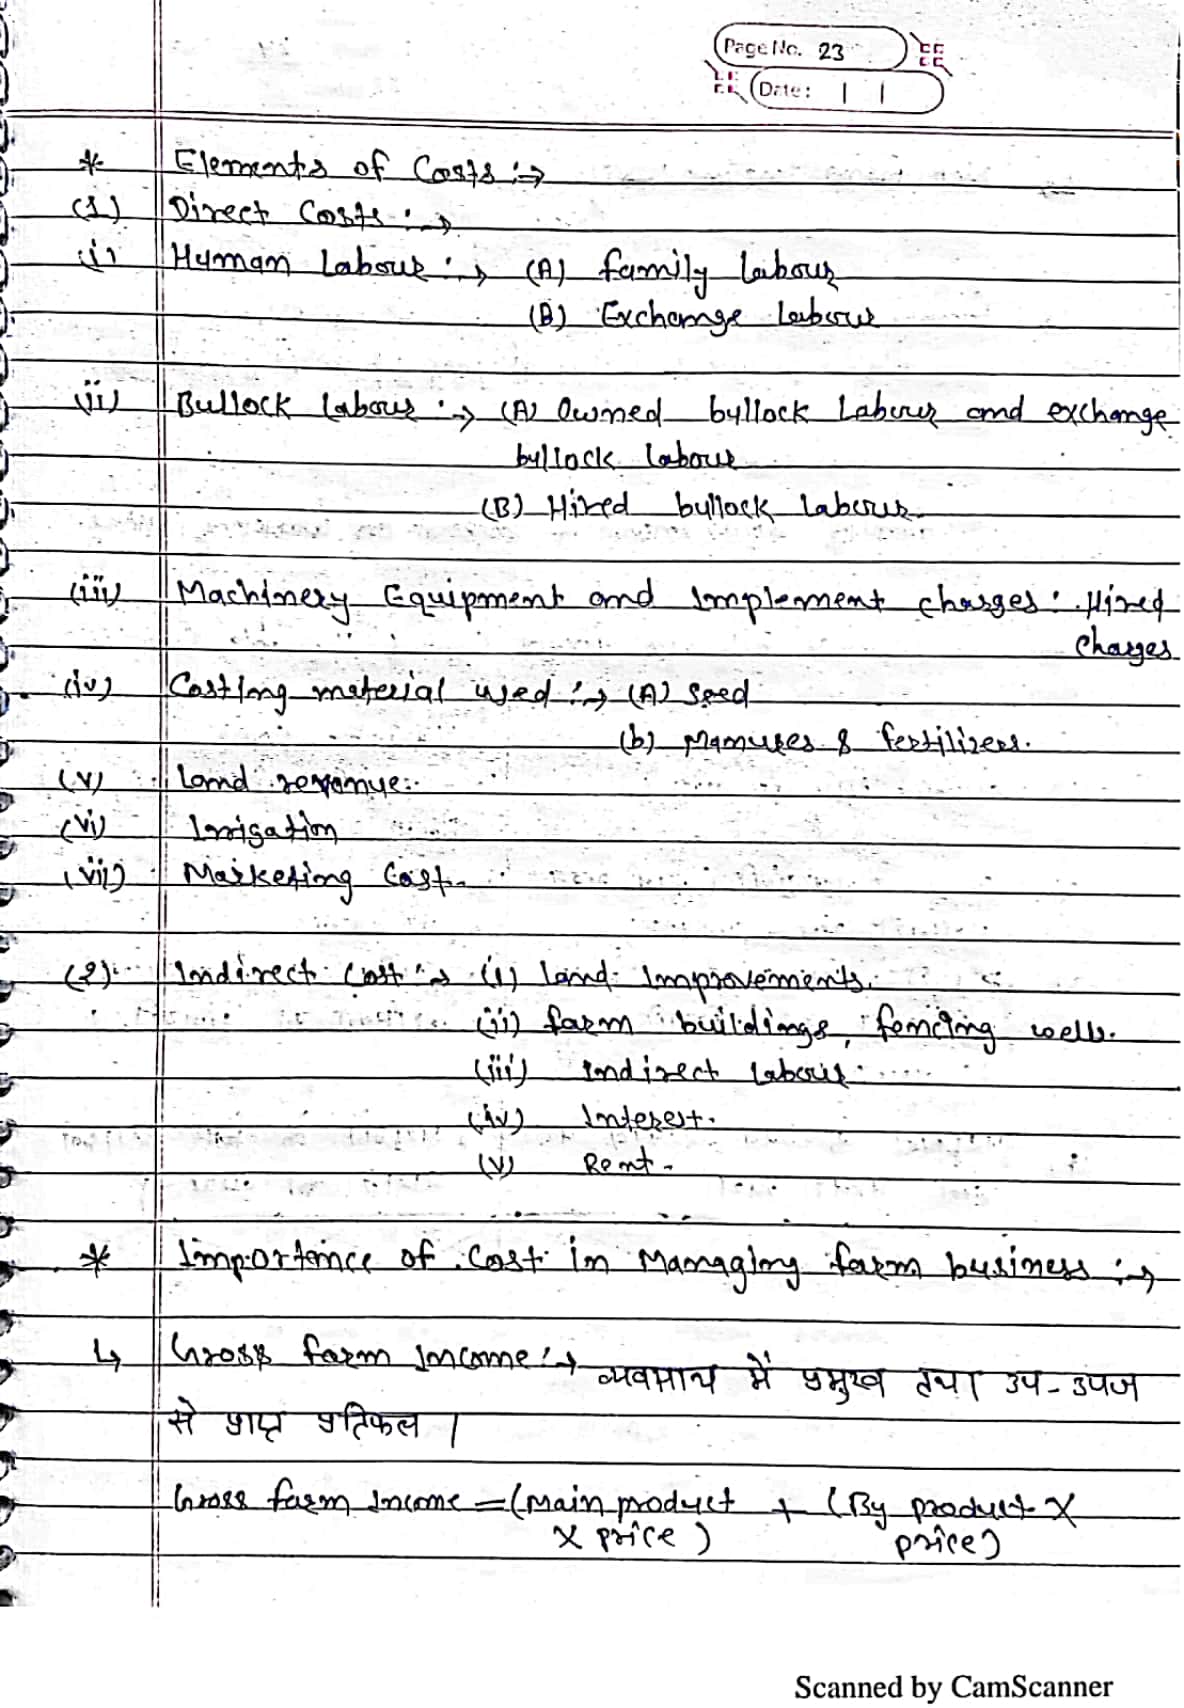 Page No. 23
Date: | |
* Elements of Costs :→
(1) Direct Costs :→
(i) Human Labour :→ (A) family labour
(B) Exchange Labour
(ii) Bullock labour :→ (A) Owned bullock Labour and exchange
bullock labour
(B) Hired bullock labour.
(iii) Machinery Equipment and Implement charges : Hired
charges
(iv) Costing material used :→ (A) Seed
(b) Manures & fertilizers.
(v) Land revenue.
(vi) Irrigation
(vii) Marketing Cost.
(2) Indirect Cost :→ (i) land Improvements.
(ii) farm buildings, fencing wells.
(iii) Indirect labour.
(iv) Interest.
(v) Rent.
* Importance of Cost in Managing farm business :→
↳ Gross farm Income :→ व्यवसाय में प्रमुख तथा उप-उपज
से प्राप्त प्रतिफल ।
Gross farm Income = (Main product + (By product X
X price) price)
Scanned by CamScanner